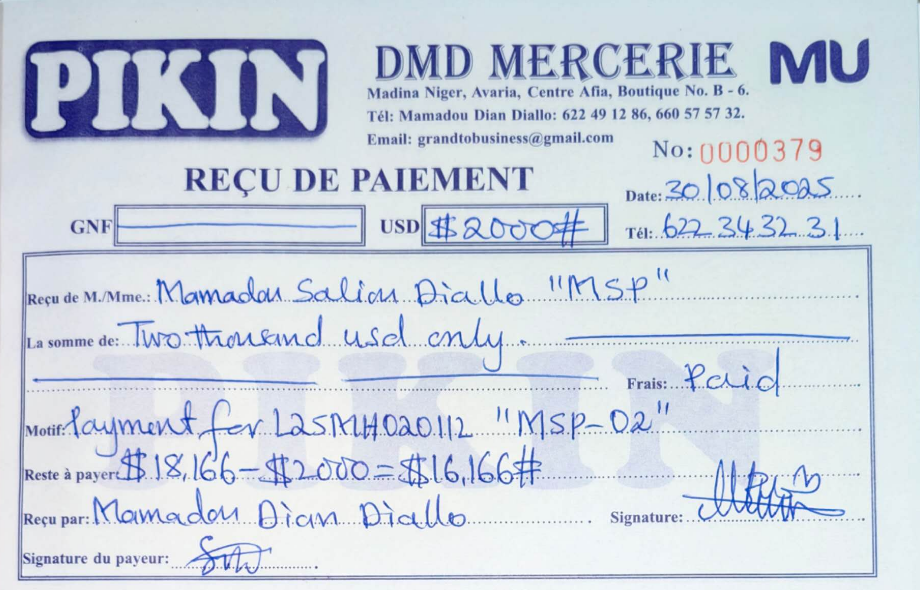 PIKIN
DMD MERCERIE
MU
Madina Niger, Avaria, Centre Afia, Boutique No. B - 6.
Tél: Mamadou Dian Diallo: 622 49 12 86, 660 57 57 32.
Email: grandtobusiness@gmail.com
No: 0000379
REÇU DE PAIEMENT
Date: 30/08/2025
GNF
USD $2000#
Tél: 622 34 32 31
Reçu de M./Mme.: Mamadou Saliou Diallo "MSP"
La somme de: Two thousand usd only.
Frais: Paid
Motif: Payment for L25MH020112 "MSP-02"
Reste à payer: $18,166-$2000=$16,166#
Reçu par: Mamadou Dian Diallo
Signature:
Signature du payeur:
PIKIN